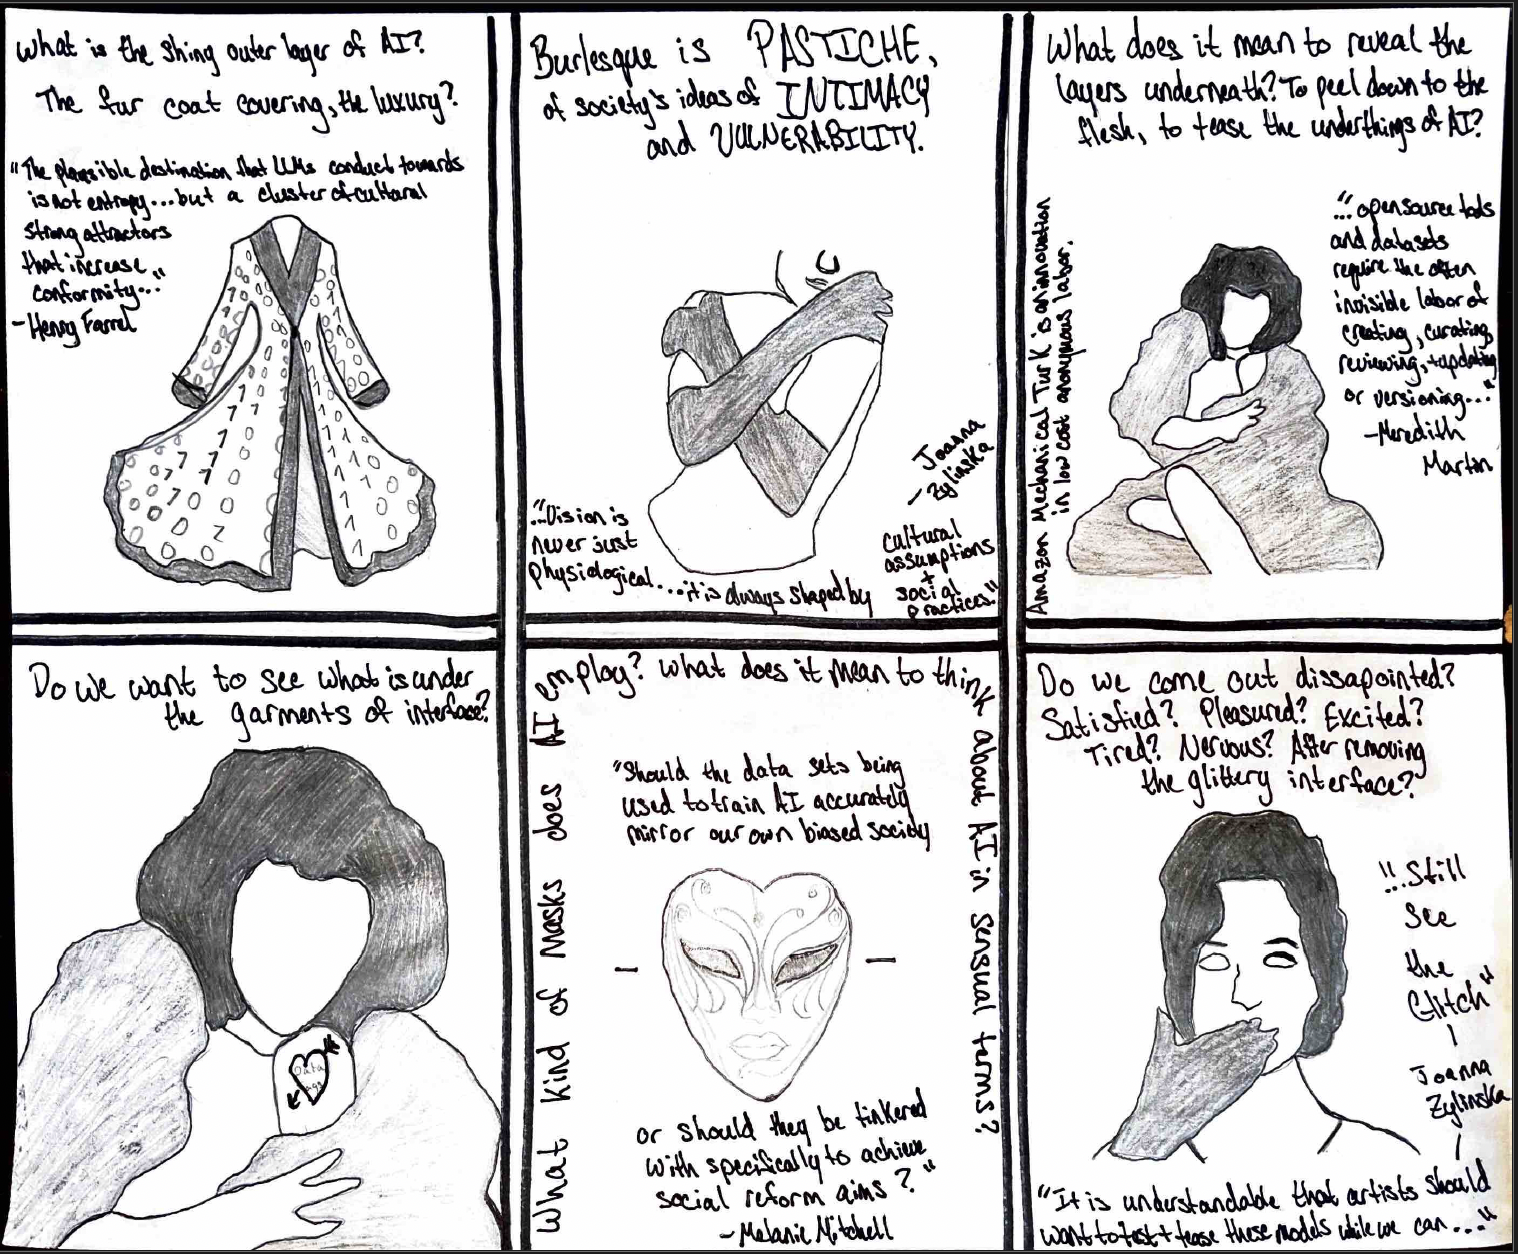 What is the shing outer layer of AI?
The fur coat covering, the luxury?
"The plausible destination that LLMs conduct towards
is not entropy... but a cluster of cultural
strong attractors
that increase
conformity..."
-Henry Farrel
Burlesque is PASTICHE,
of society's ideas of INTIMACY
and VULNERABILITY.
"...Vision is
never just
physiological....it is always shaped by
cultural
assumptions
+
social
practices."
- Joanna
Zylinska
What does it mean to reveal the
layers underneath? To peel down to the
flesh, to tease the underthings of AI?
Amazon Mechanical Turk is an innovation
in low cost anonymous labor.
"...opensource tools
and datasets
require the often
invisible labor of
creating, curating,
reviewing, + updating
or versioning..."
-Meredith
Martin
Do we want to see what is under
the garments of interface?
Data
What kind of masks does AI employ? What does it mean to think about AI in sensual terms?
"Should the data sets being
used to train AI accurately
mirror our own biased society
-
-
or should they be tinkered
with specifically to achieve
social reform aims?"
-Melanie Mitchell
Do we come out dissapointed?
Satisfied? Pleasured? Excited?
Tired? Nervous? After removing
the glittery interface?
"...Still
see
the
Glitch"
|
Joanna
Zylinska
|
"It is understandable that artists should
want to test + tease these models while we can..."